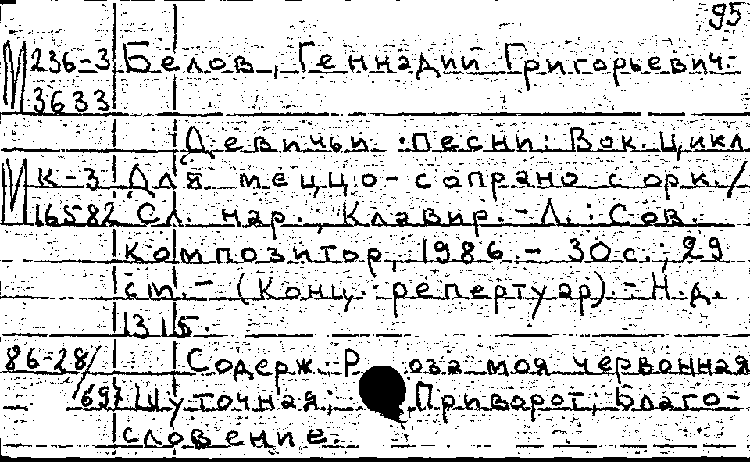 95
М 236-3 Белов, Геннадий Григорьевич.
3633
Девичьи песни: Вок. цикл
М К-3 для меццо-сопрано с орк./
16582 Сл. нар., Клавир. - Л.: Сов.
композитор, 1986. - 30 с.; 29
см. - (Конц. репертуар). - Н.д.
1315.
86-28/ Содерж.: Роза моя червонная
697 Шуточная; Приворот; Благо-
словение.